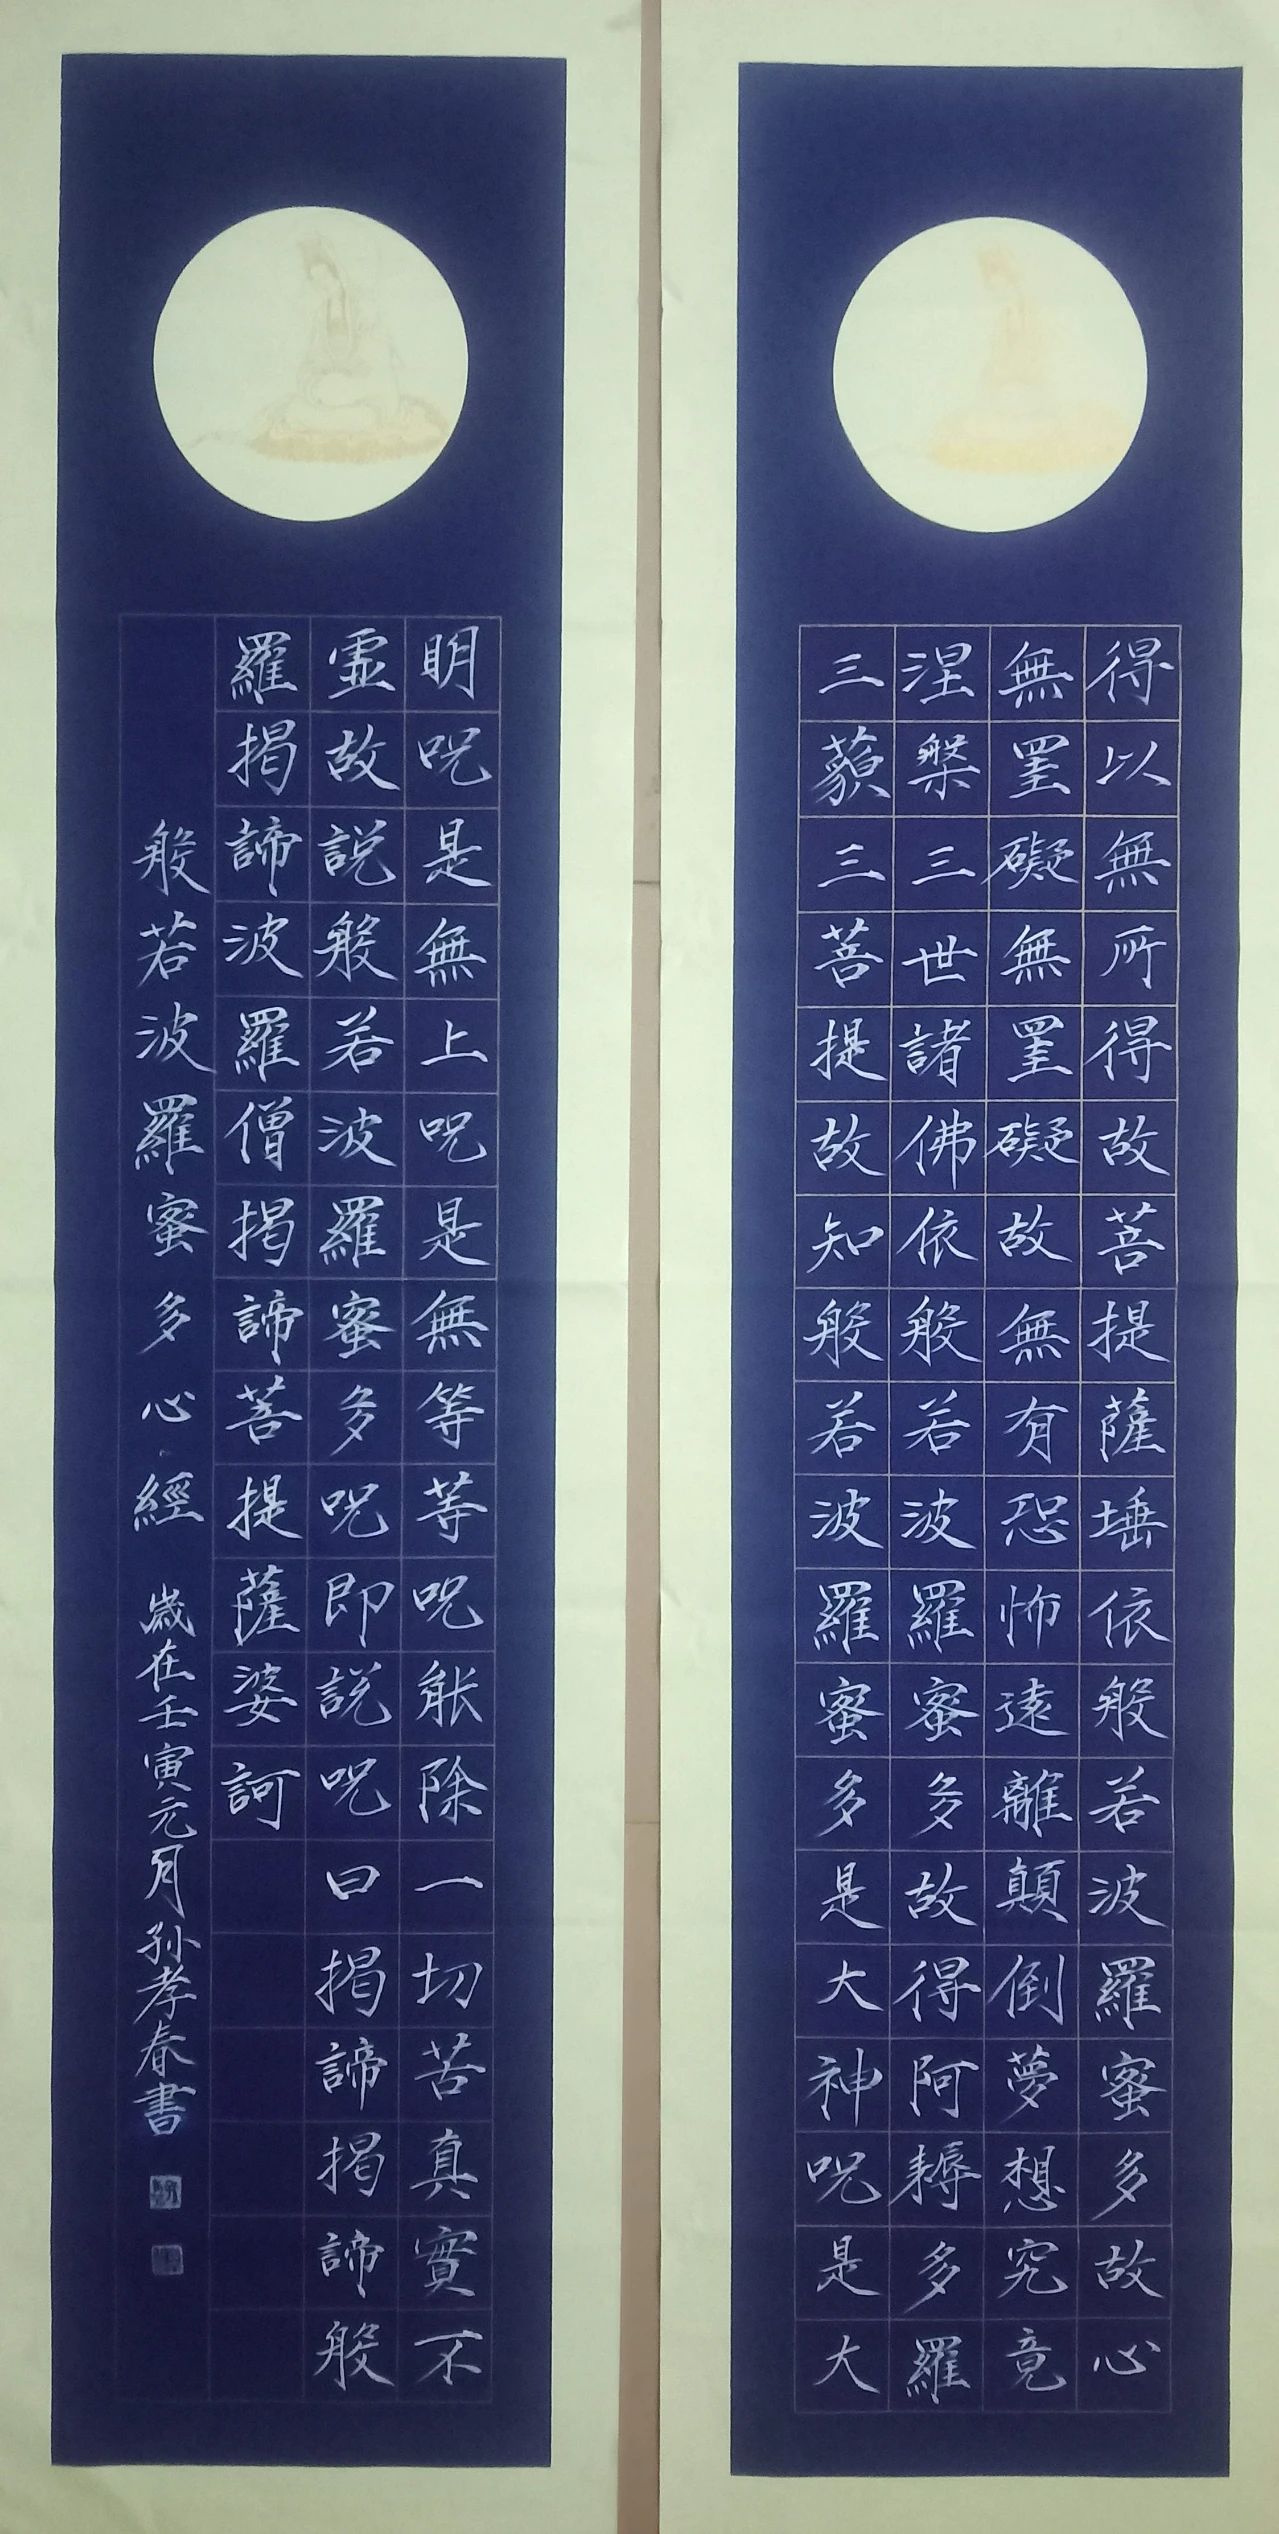 得以無所得故菩提薩埵依般若波羅蜜多故心
無罣礙無罣礙故無有恐怖遠離顛倒夢想究竟
涅槃三世諸佛依般若波羅蜜多故得阿耨多羅
三藐三菩提故知般若波羅蜜多是大神呪是大
明呪是無上呪是無等等呪能除一切苦真實不
虛故說般若波羅蜜多呪即說呪曰揭諦揭諦般
羅揭諦波羅僧揭諦菩提薩婆訶
般若波羅蜜多心經 歲在壬寅元月孙孝春書